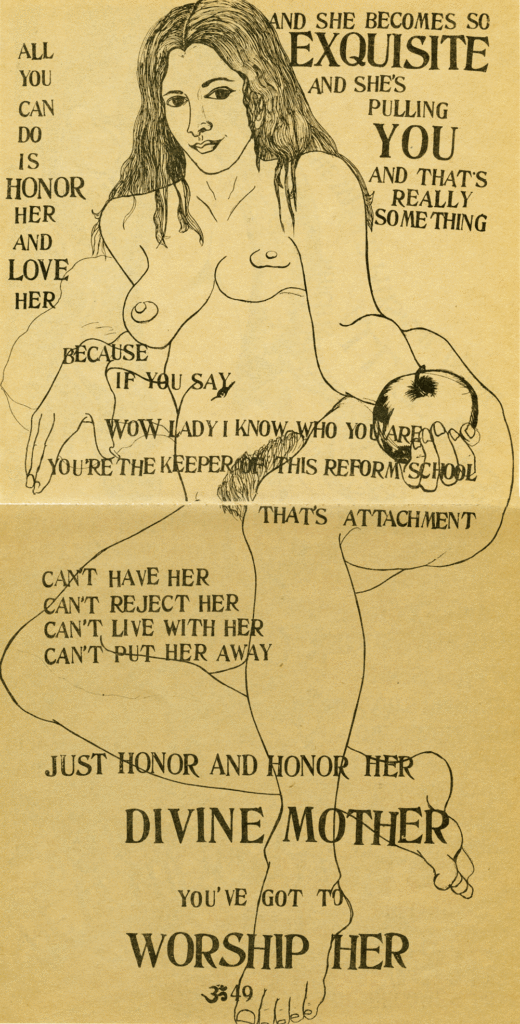 ALL
YOU
CAN
DO
IS
HONOR
HER
AND
LOVE
HER
AND SHE BECOMES SO
EXQUISITE
AND SHE'S
PULLING
YOU
AND THAT'S
REALLY
SOMETHING
BECAUSE
IF YOU SAY
WOW LADY I KNOW WHO YOU ARE
YOU'RE THE KEEPER OF THIS REFORM SCHOOL
THAT'S ATTACHMENT
CAN'T HAVE HER
CAN'T REJECT HER
CAN'T LIVE WITH HER
CAN'T PUT HER AWAY
JUST HONOR AND HONOR HER
DIVINE MOTHER
YOU'VE GOT TO
WORSHIP HER
ॐ49